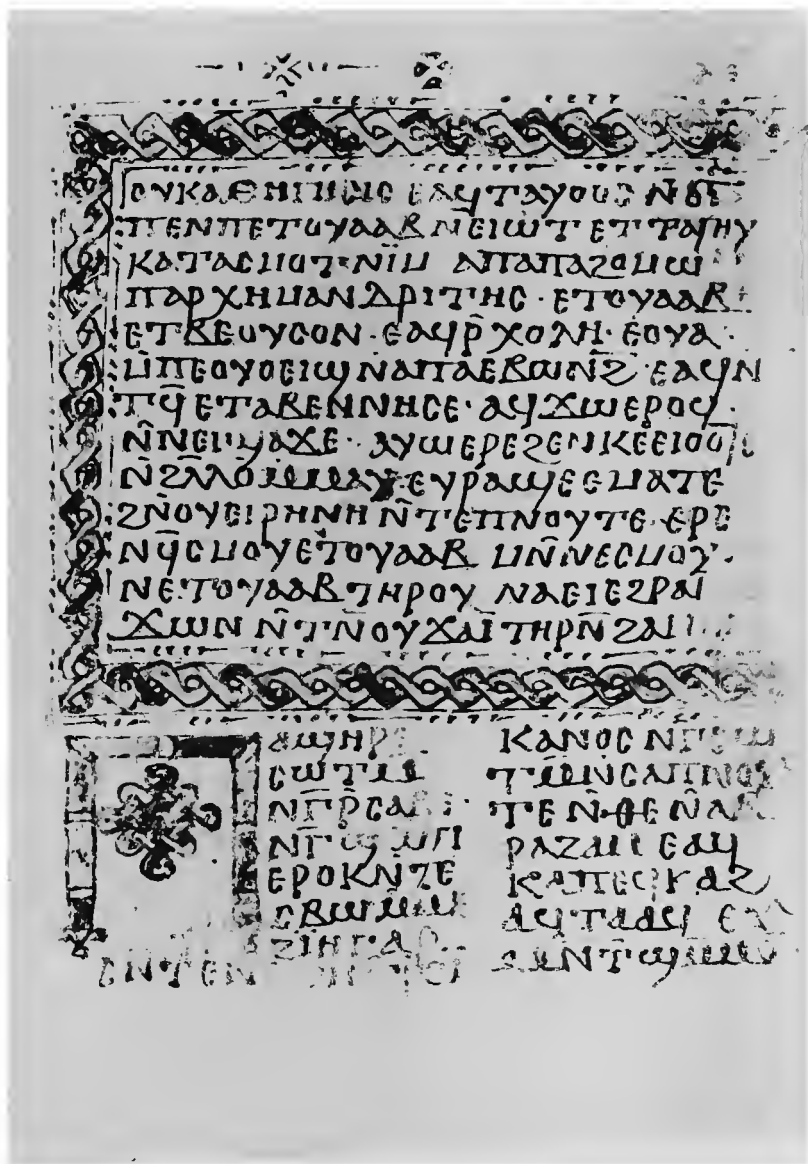 ⲉⲁϥⲧⲁⲩⲟⲟⲥ ⲛ̄ϭⲓ
ⲡⲉⲛⲡⲉⲧⲟⲩⲁⲁⲃ ⲛ̄ⲉⲓⲱⲧ ⲉⲧⲧⲁⲓⲏⲩ
ⲕⲁⲧⲁⲥⲙⲟⲧ ⲛⲓⲙ ⲁⲡⲁⲡⲁϩⲟⲙⲱ
ⲡⲁⲣⲭⲏⲙⲁⲛⲇⲣⲓⲧⲏⲥ · ⲉⲧⲟⲩⲁⲁⲃ
ⲉⲧⲃⲉⲟⲩⲥⲟⲛ · ⲉⲁϥⲣ̄ⲭⲟⲗⲏ · ⲉⲟⲩⲁ ·
ⲙ̄ⲡⲉⲟⲩⲟⲉⲓϣ ⲛⲁⲡⲁⲉⲃⲱⲛ̄ϩ · ⲉⲁϥⲛ
ⲧϥ̄ ⲉⲧⲁⲃⲉⲛⲛⲏⲥⲉ · ⲁϥϫⲱⲉⲣⲟϥ ·
ⲛ̄ⲛⲉⲓϣⲁϫⲉ · ⲁⲩⲱⲉⲣⲉϩⲉⲛⲕⲉⲉⲓⲟⲧⲉ
ⲛ̄ϩⲗ̄ⲗⲟⲙ̄ⲙⲁⲩ · ⲉⲩⲣⲁϣⲉⲉⲙⲁⲧⲉ
ϩⲛ̄ⲟⲩⲉⲓⲣⲏⲛⲏ ⲛ̄ⲧⲉⲡⲛⲟⲩⲧⲉ · ⲉⲣⲉ
ⲛϥ̄ⲥⲙⲟⲩⲉⲧⲟⲩⲁⲁⲃ ⲙⲛ̄ⲛⲉⲥⲙⲟⲩ ·
ⲛⲉⲧⲟⲩⲁⲁⲃ ⲧⲏⲣⲟⲩ ⲛⲁⲉⲓⲉϩⲣⲁⲓ
ϫⲱⲛ ⲛ̄ⲧⲛ̄ⲟⲩϫⲁⲓ̈ ⲧⲏⲣⲛ̄
ⲡⲁϣⲏⲣⲉ
ⲥⲱⲧⲙ̄
ⲛⲅ̄ⲣ̄ⲥⲁⲃⲉ ·
ⲛⲅ̄ϣⲱⲡ
ⲉⲣⲟⲕⲛ̄ⲧⲉ
ⲥⲃⲱⲙ̄ⲙⲉ
ⲕⲁⲛⲟⲥ ⲛⲅ̄ⲥⲱ
ⲧⲙ̄ⲛⲥⲁⲡⲛⲟⲩ
ⲧⲉ ⲛ̄ⲑⲉ ⲛ̄ⲁⲃ
ⲣⲁϩⲁⲙ ⲉⲁϥ
ⲕⲁⲡⲉϥⲕⲁϩ
ⲙⲛ̄ⲧϣⲙ̄ⲙⲟ